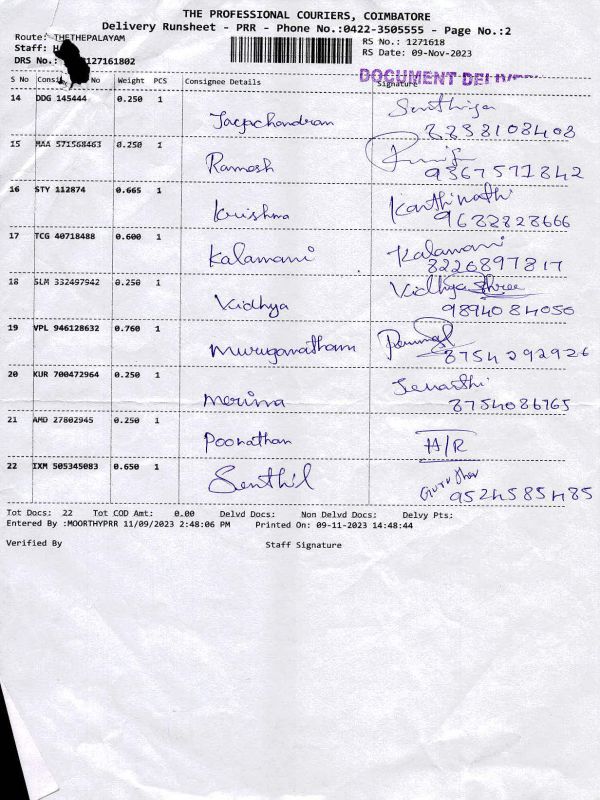 THE PROFESSIONAL COURIERS, COIMBATORE
Delivery Runsheet - PRR - Phone No.:0422-3505555 - Page No.:2
Route: THETHEPALAYAM
RS No.: 1271618
Staff:
RS Date: 09-Nov-2023
DRS No.: 127161802
DOCUMENT
S No No Weight PCS Consignee Details Signature
14 DDG 145444 0.250 1 Jayachandran 8258108408
15 MAA 571568463 0.250 1 Ramesh 9367571842
16 STY 112874 0.665 1 Krishna 9688828666
17 TCG 40718488 0.600 1 Kalamani Kalamani 8220897817
18 SLM 332497942 0.250 1 Vidhya Vidhya Shree 9894084050
19 VPL 946128632 0.760 1 Muruganatham 8754292926
20 KUR 700472964 0.250 1 8754086765
21 AMD 27802945 0.250 1 Poonathan H/R
22 IXM 505345083 0.650 1 Senthil 9524585485
Tot Docs: 22 Tot COD Amt: 0.00 Delvd Docs: Non Delvd Docs: Delvy Pts:
Entered By :MOORTHYPRR 11/09/2023 2:48:06 PM Printed On: 09-11-2023 14:48:44
Verified By Staff Signature